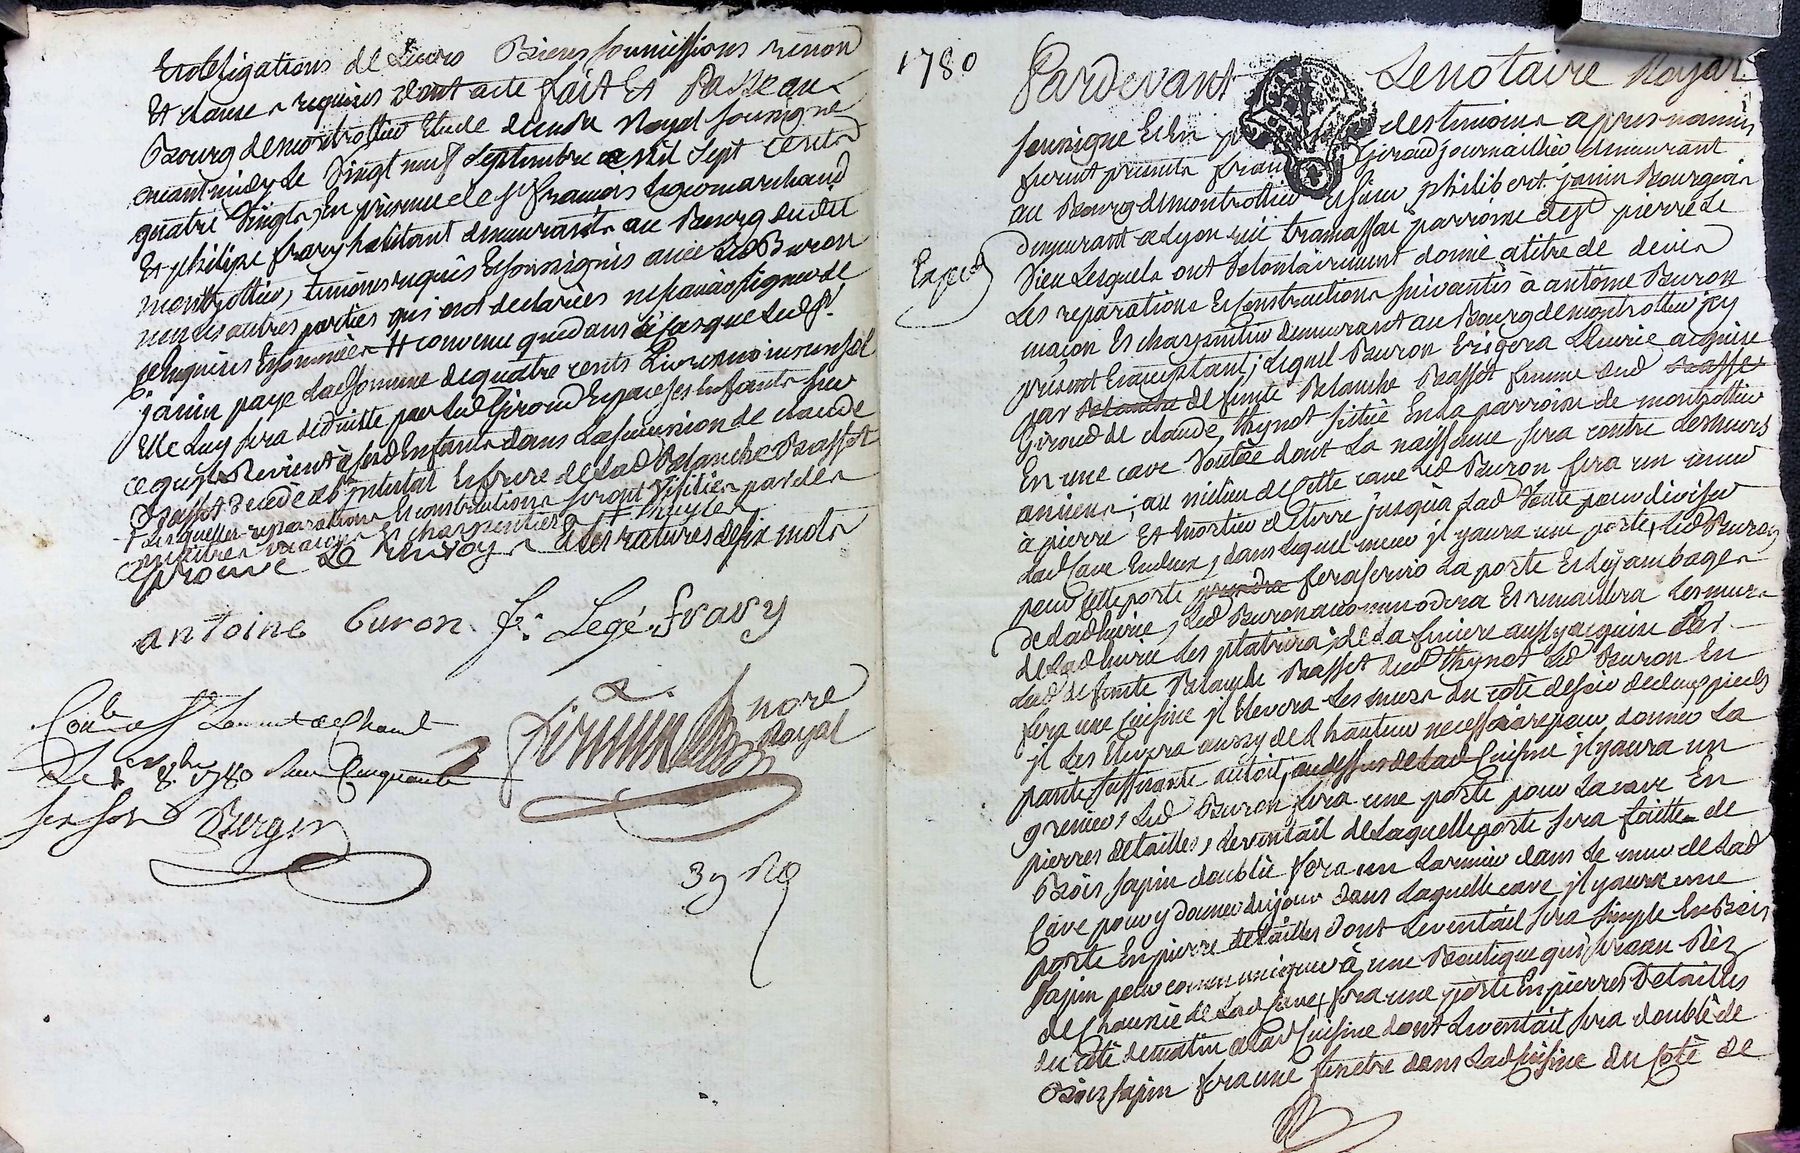 Et obligations de leurs Biens soumissions renon
Et clause requises dont acte fait Et Passé au
Bourg de montrottier Etude dudit Royal soussigné
avant midy Le vingt neuf septembre mil sept cents
quatre vingts, En presence de sr françois Legé marchand
Et philipe frary habitant demeurants au Bourg dudit
montrottier, temoins requis Et soussignés avec led Buron
non les autres parties qui ont declarées ne sçavoir signer de
ce Enquises Et sommées # convenu que dans le cas que led sr
janin paye lad somme de quatre cents Livres
Elle luy sera déduitte par led Giroud Et par ses Enfants sur
ce qu'il Revient à sesd Enfants dans la succession de claude
Brassot décédé ab intestat Et frere de lad Blanche Brassot
+ lesquelles reparations Et constructions seront visitées par des
maîtres maçons Et charpentiers +
aprouvé Le Renvoy Et les ratures de six mots
antoine Buron. f: Legé. frary
nore
Royal
Conlé a St Laurent de Chamt
Le 8 8bre 1780 Reçu Cinquante
six sols Bergir
39 Re
1780
Pardevant Le notaire Royal
soussigné Et En des temoins apres nommés
furent presents fran Giroud journaillier demeurant
au Bourg de montrottier Et sieur philibert janin Bourgeois
demeurant a Lyon rüe tramassac parroisse de St pierre Le
Vieu Lesquels ont volontairement donné a titre de devis
Expedé
Les reparations Et Constructions suivantes à antoine Buron
maçon Et charpentier demeurant au Bourg de montrottier icy
présent Et acceptant; Lequel Buron Erigera L'écurie acquise
par Blanche de feute Blanche Brassot femme dud Brassot
Giroud de claude thynot située En la parroisse de montrottier
En une cave voutée dont La naissance sera contre les murs
anciens; au milieu de Cette cave led Buron fera un mur
à pierre Et mortier de terre jusqu'à lad voute pour diviser
lad Cave En deux, dans lequel mur il y aura une porte, led Buron
pour Cette porte prendra fera servir La porte Et les jambages
de lad Ecurie, led Buron accommodera Et remaillera les murs
de lad Ecurie les platrira; de La feniere aussy acquise des
lad defunte Blanche Brassot dud thynot led Buron En
fera une Cuisine il Elevera Les murs du coté de soir de deux pieds
il Les Elevera aussy de l hauteur necessaire pour donner La
pante suffisante au toit, au dessus de lad Cuisine il y aura un
grenier, led Buron fera une porte pour la cave En
pierres de tailles, Leventail de Laquelle porte sera faitte de
Bois sapin doublée fera un Larmier dans le mur de lad
Cave pour y donner du jour dans Laquelle cave il y aura une
porte En pierre de tailles dont Leventail sera simple En Bois
sapin pour communiquer à une Boutique qui sera au Rèz
de Chaunée de lad Cave, fera une porte En pierres de tailles
du coté de matin a lad Cuisine dont Leventail sera doublé de
Bois sapin fera une fenetre dans lad Cuisine du Coté de